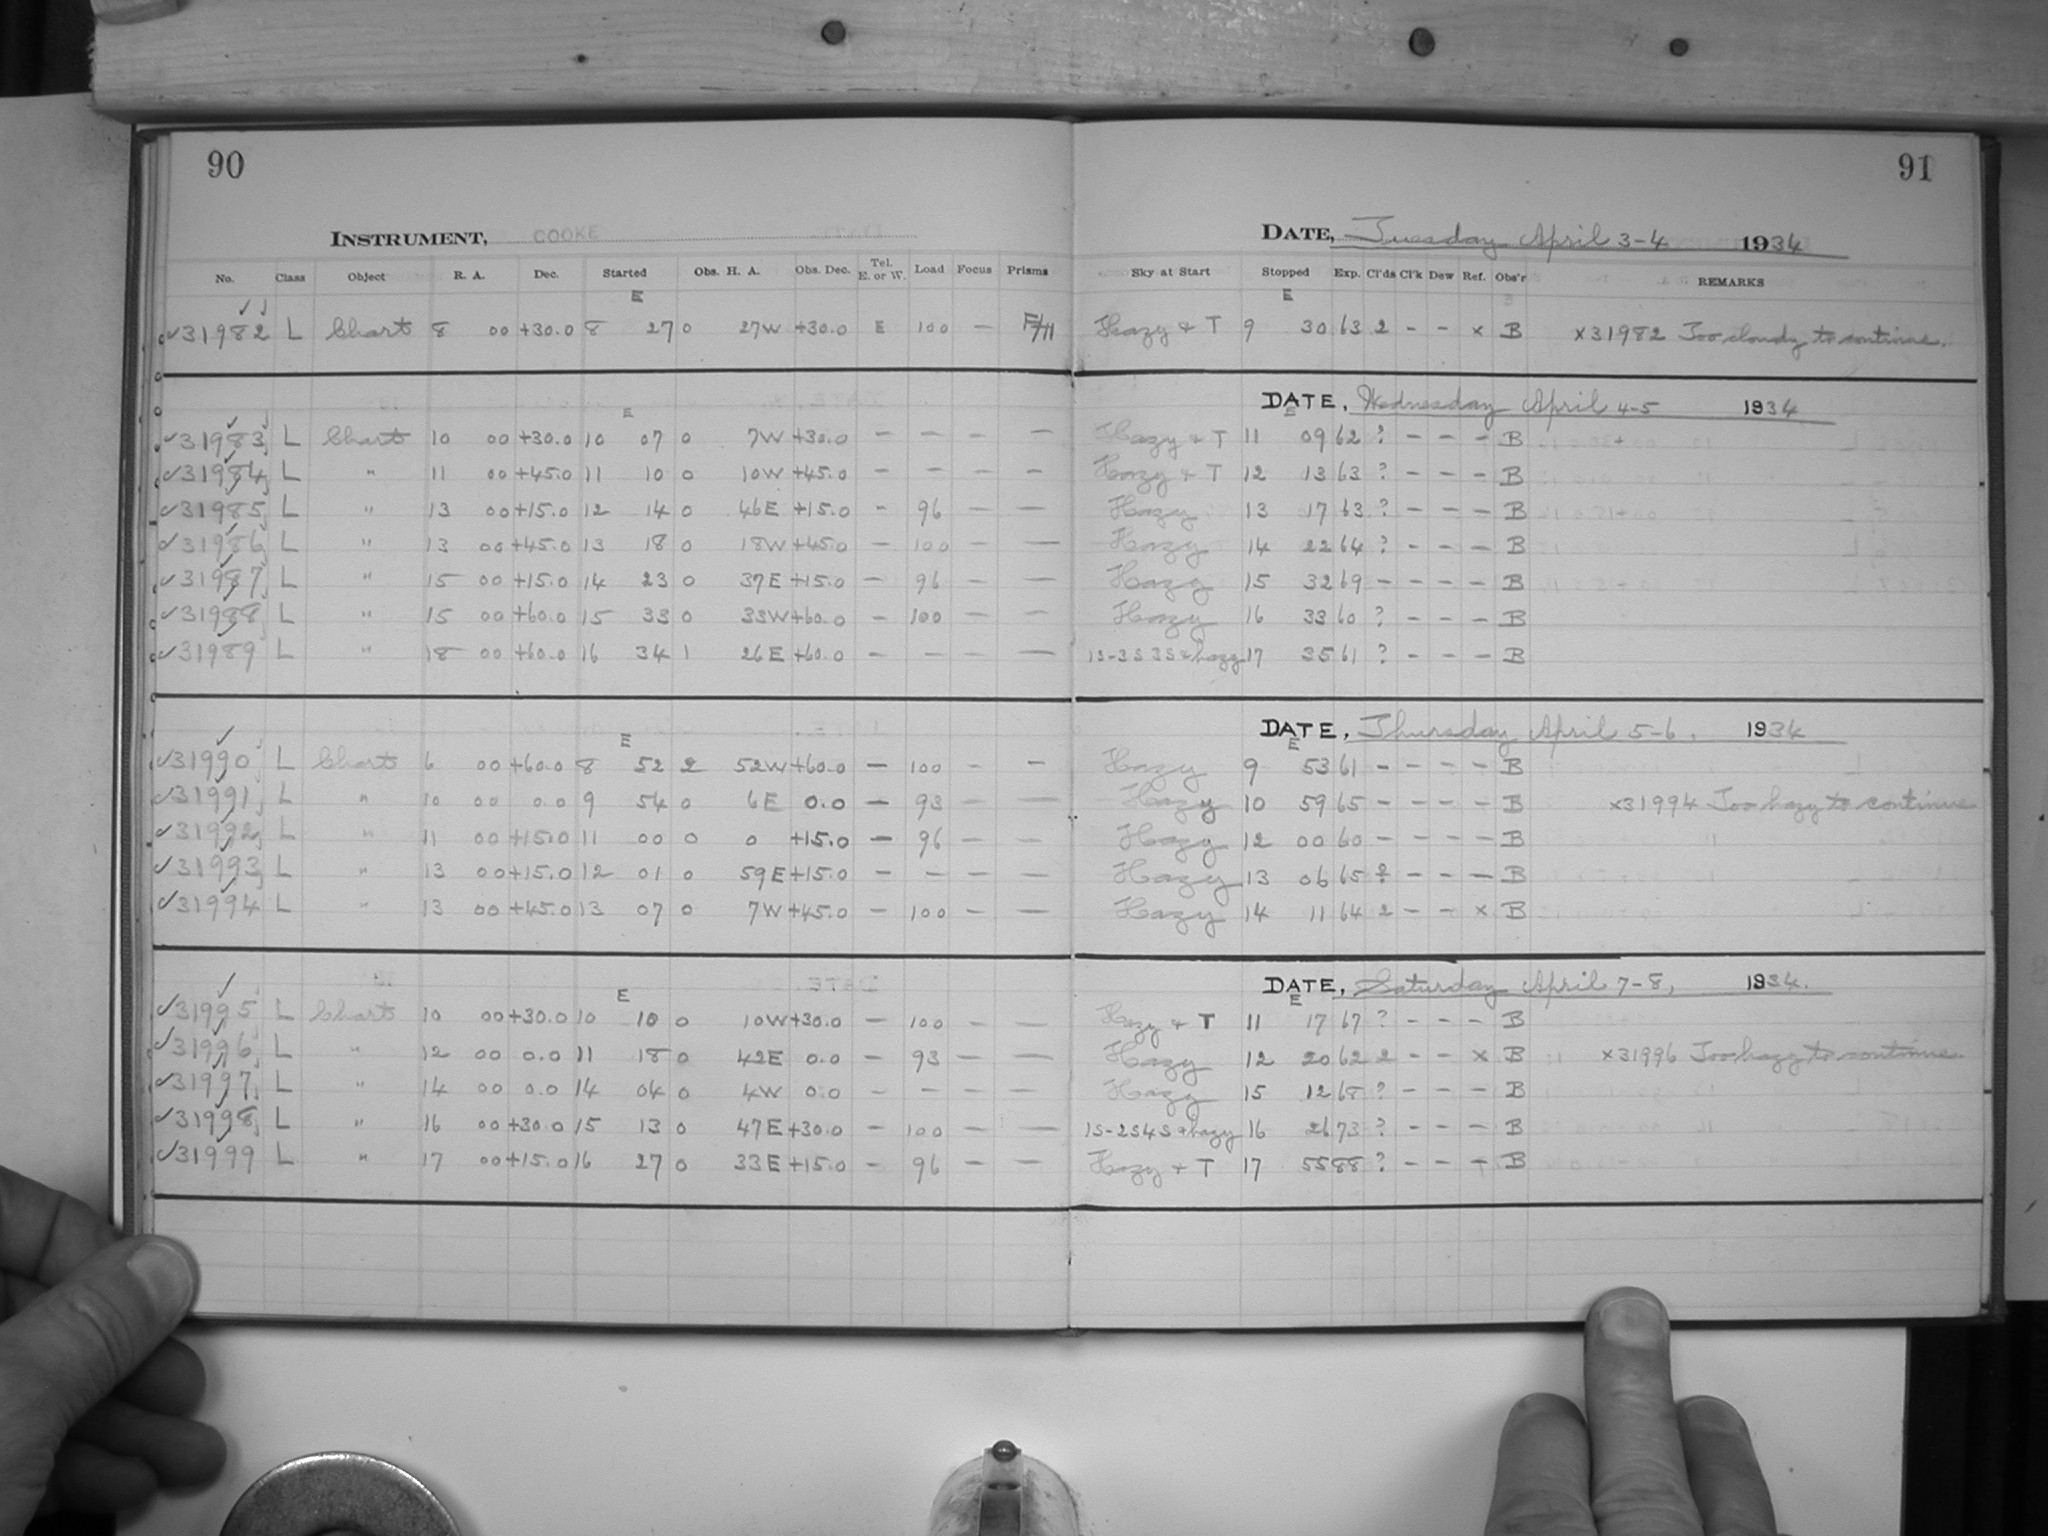 90
91
INSTRUMENT, COOKE
DATE, Tuesday April 3-4 1934
No. Class Object R. A. Dec. Started Obs. H. A. Obs. Dec. Tel. E. or W. Load Focus Prisms Sky at Start Stopped Exp. Cl'ds Cl'k Dew Ref. Obs'r REMARKS
E E
✓31982 L Chart 8 00 +30.0 8 27 0 27W +30.0 E 100 - Hazy + T 9 30 63 2 - - x B x31982 Too cloudy to continue.
DATE, Wednesday April 4-5 1934
E E
✓31983 L Chart 10 00 +30.0 10 07 0 7W +30.0 - - - - Hazy + T 11 09 62 ? - - - B
✓31984 L " 11 00 +45.0 11 10 0 10W +45.0 - - - - Hazy + T 12 13 63 ? - - - B
✓31985 L " 13 00 +15.0 12 14 0 46E +15.0 - 96 - - Hazy 13 17 63 ? - - - B
✓31986 L " 13 00 +45.0 13 18 0 18W +45.0 - 100 - - Hazy 14 22 64 ? - - - B
✓31987 L " 15 00 +15.0 14 23 0 37E +15.0 - 96 - - Hazy 15 32 69 - - - - B
✓31988 L " 15 00 +60.0 15 33 0 33W +60.0 - 100 - - Hazy 16 33 60 ? - - - B
✓31989 L " 18 00 +60.0 16 34 1 26E +60.0 - - - - 1S-3S 3S + hazy 17 35 61 ? - - - B
DATE, Thursday April 5-6, 1934
E E
✓31990 L Chart 6 00 +60.0 8 52 2 52W +60.0 - 100 - - Hazy 9 53 61 - - - - B
✓31991 L " 10 00 0.0 9 54 0 6E 0.0 - 93 - - Hazy 10 59 65 - - - - B x31994 Too hazy to continue
✓31992 L " 11 00 +15.0 11 00 0 0 +15.0 - 96 - - Hazy 12 00 60 - - - - B
✓31993 L " 13 00 +15.0 12 01 0 59E +15.0 - - - - Hazy 13 06 65 ? - - - B
✓31994 L " 13 00 +45.0 13 07 0 7W +45.0 - 100 - - Hazy 14 11 64 2 - - x B
DATE, Saturday April 7-8, 1934.
E E
✓31995 L Chart 10 00 +30.0 10 10 0 10W +30.0 - 100 - - Hazy + T 11 17 67 ? - - - B
✓31996 L " 12 00 0.0 11 18 0 42E 0.0 - 93 - - Hazy 12 20 62 2 - - x B x31996 Too hazy to continue
✓31997 L " 14 00 0.0 14 04 0 4W 0.0 - - - - Hazy 15 12 68 ? - - - B
✓31998 L " 16 00 +30.0 15 13 0 47E +30.0 - 100 - - 1S-2S4S + hazy 16 26 73 ? - - - B
✓31999 L " 17 00 +15.0 16 27 0 33E +15.0 - 96 - - Hazy + T 17 55 88 ? - - - B